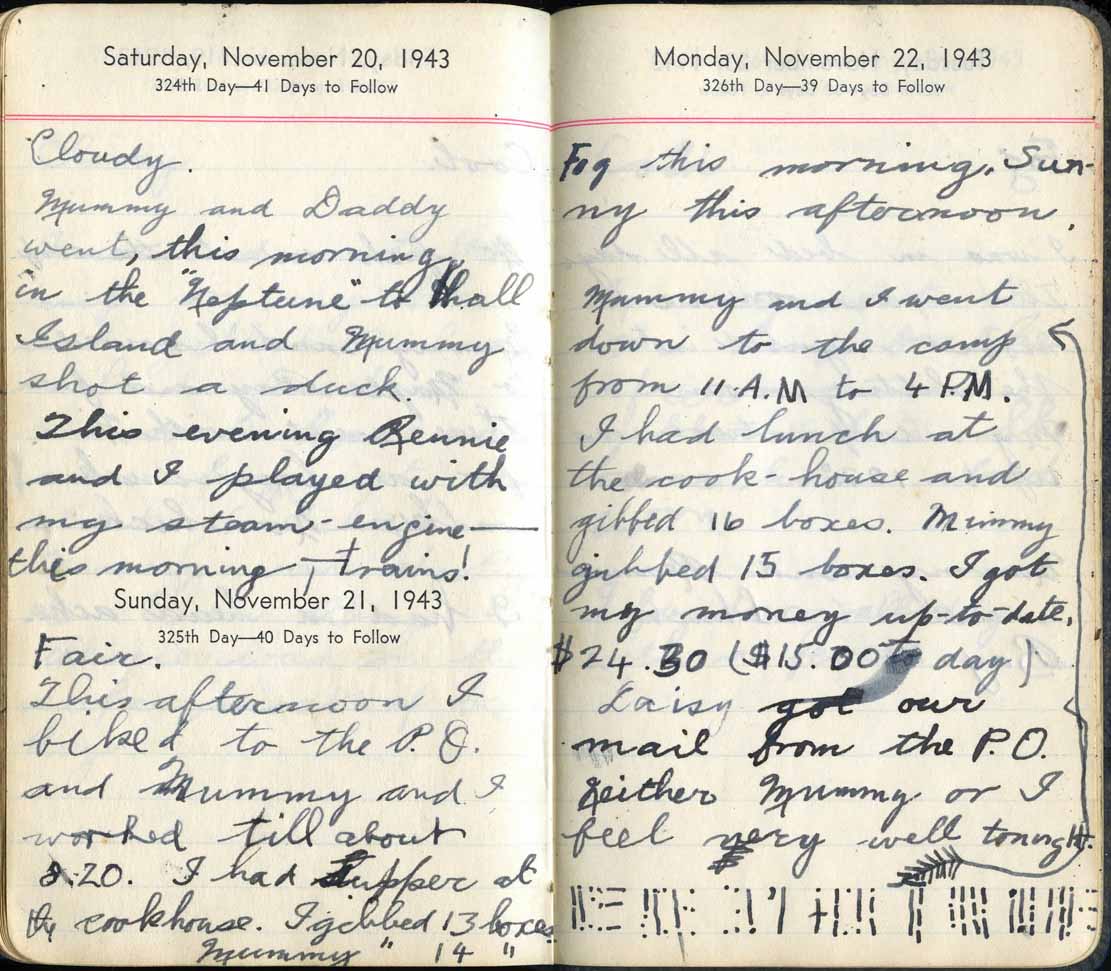 Saturday, November 20, 1943
324th Day—41 Days to Follow
Cloudy.
Mummy and Daddy
went, this morning,
in the "Neptune" to Thall
Island and Mummy
shot a duck.
This evening Rennie
and I played with
my steam-engine—
this morning, trains!
Sunday, November 21, 1943
325th Day—40 Days to Follow
Fair.
This afternoon I
biked to the P.O.
and Mummy and I
worked till about
8.20. I had supper at
the cookhouse. I gibbed 13 boxes
Mummy " 14 "
Monday, November 22, 1943
326th Day—39 Days to Follow
Fog this morning. Sun-
ny this afternoon.
Mummy and I went
down to the camp
from 11 A.M to 4 P.M.
I had lunch at
the cook-house and
gibbed 16 boxes. Mummy
gibbed 15 boxes. I got
my money up-to-date.
$24.30 ($15.00 to day)
Daisy got our
mail from the P.O.
Neither Mummy or I
feel very well tonight.